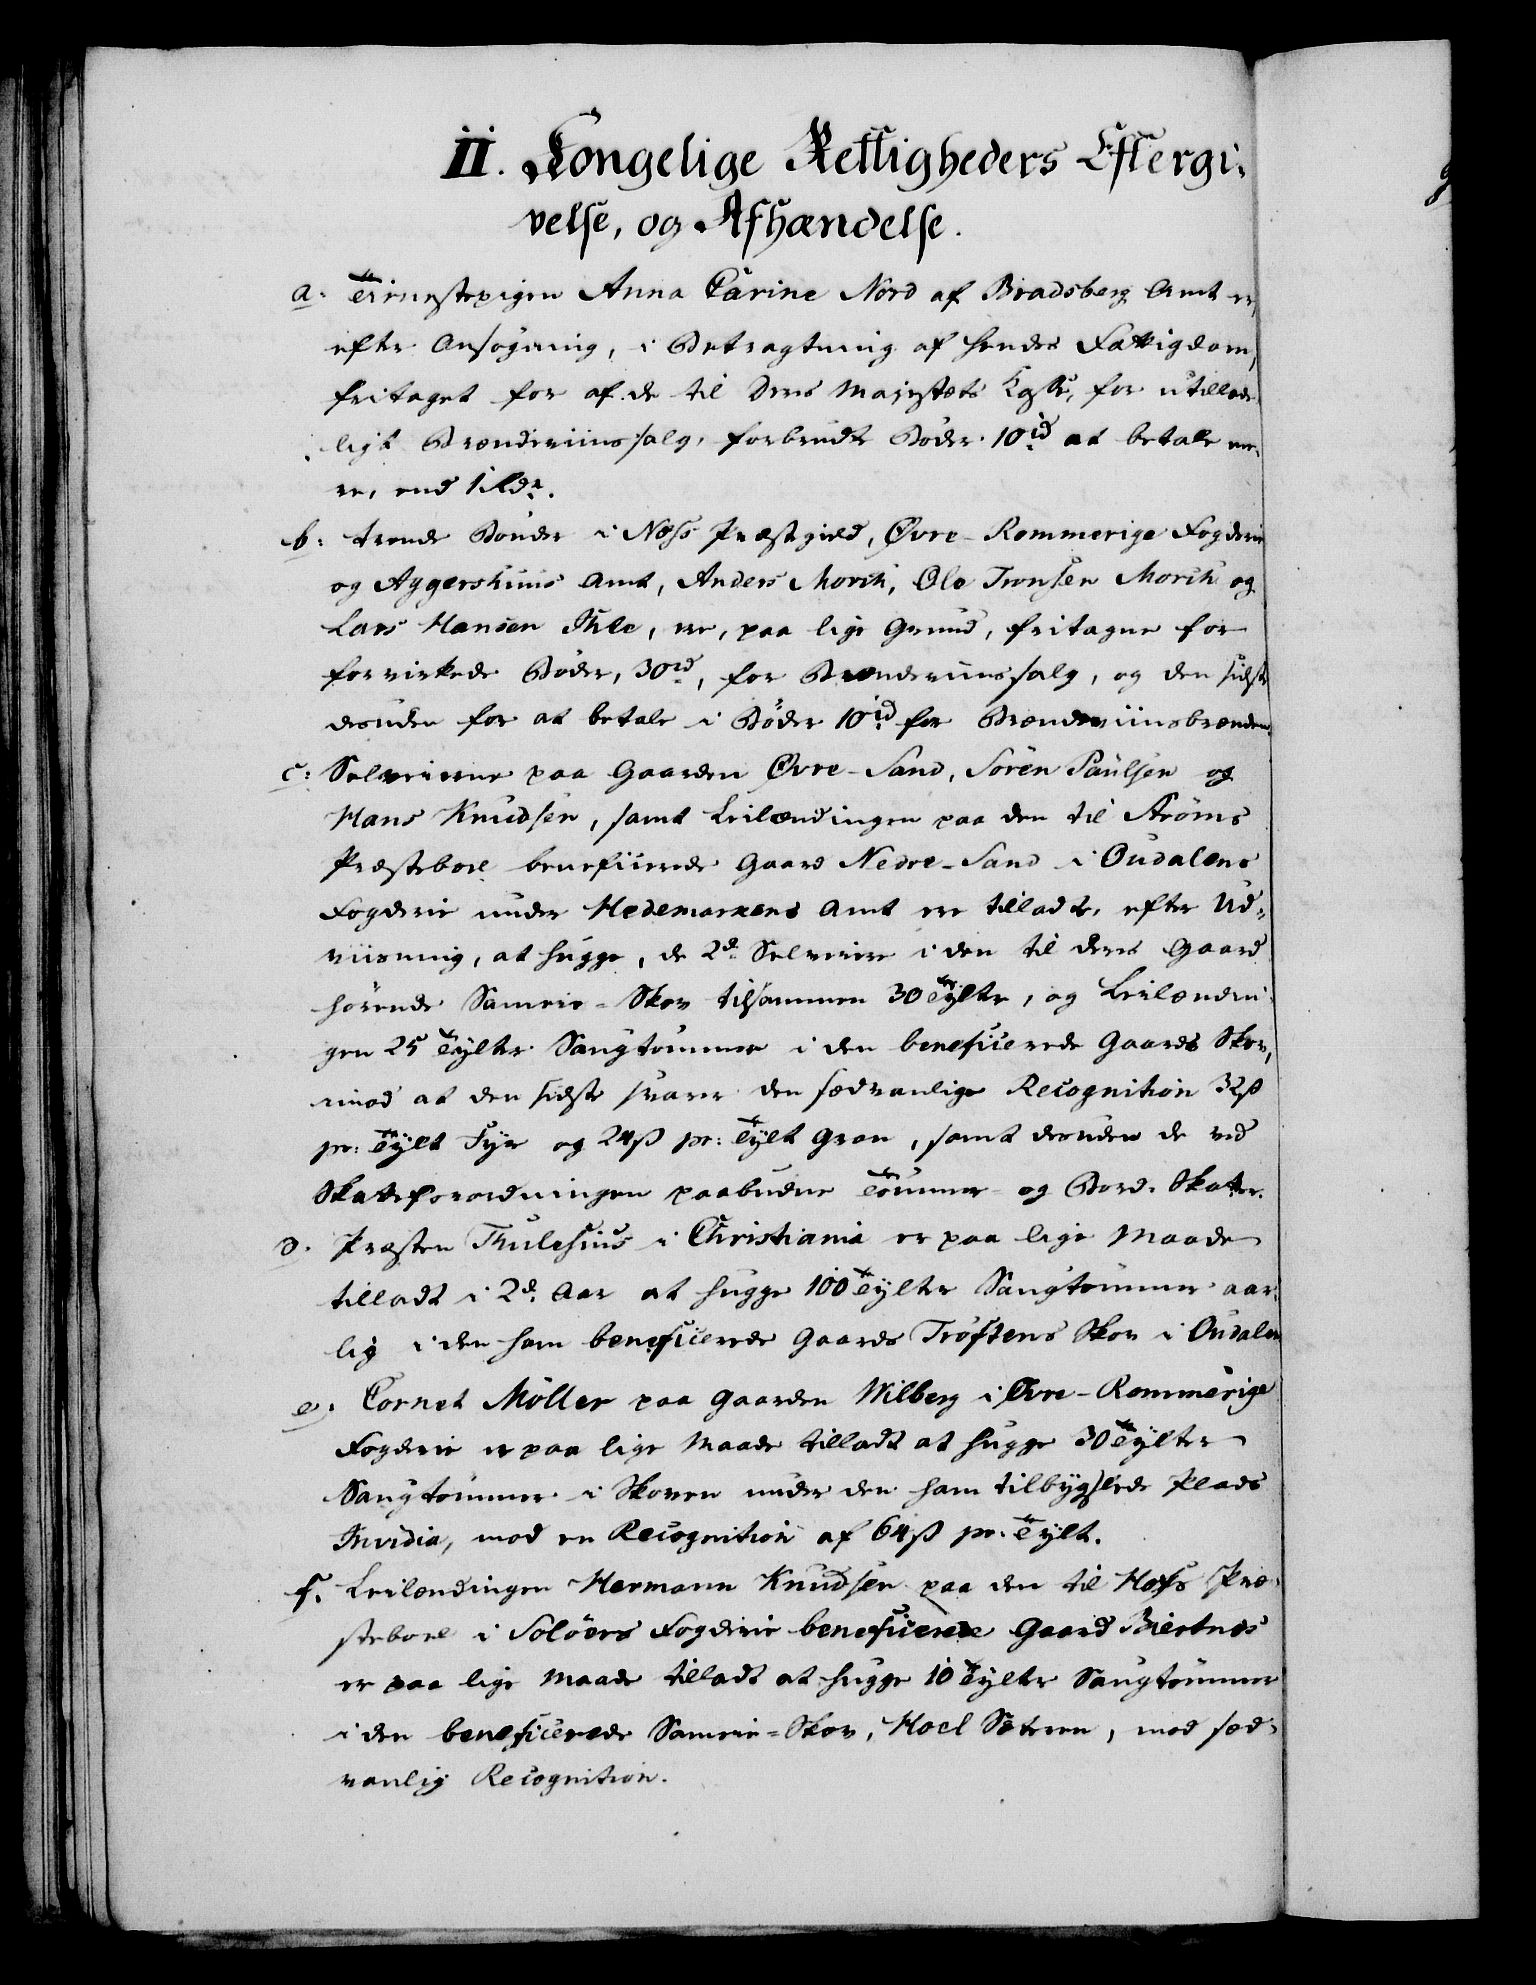 II. Kongelige Rettigheders Eftergi-
velse, og Afhændelse.
a. Tienestepigen Anna Carine Nord af Bradsberg Amt er,
efter Ansøgning, i Betragtning af hendes Fattigdom,
fritaget for af de til Deres Majestæts Kasse, for utillade-
ligt Brændeviinssalg, forbrudte Bøder 10 rd at betale me-
re, end 1 Rdr.
b: trende Bønder i Næss Præstegield, Øvre-Rommerige Fogderie
og Aggershuus Amt, Anders Morch, Ole Tronsen Morch og
Lars Hansen Ihle, ere, paa lige Grund, fritagne for
forvirkede Bøder, 30 rd, for Brændeviinssalg, og den sidste
desuden for at betale i Bøder 10 rd for Brændeviinsbrænden.
c: Selveierne paa Gaarden Øvre-Sand, Sören Paulsen og
Hans Knudsen, samt Leilændingen paa den til Ströms
Præsteboel beneficerede Gaard Nedre-Sand i Oudalens
Fogderie under Hedemarkens Amt ere tilladte, efter Ud-
viisning, at hugge, de 2de Selveiere i den til deres Gaard
hörende Sameie-Skov tilsammen 30 Tylter, og Leilændin-
gen 25 Tylter Saugtømmer i den beneficerede Gaards Skov,
imod at den sidste svarer den sædvanlige Recognition 32 ß
pr: Tylt Fyr og 24 ß pr: Tylt Gran, samt desuden de ved
Skatteforordningen paabudne Tømmer- og Bord-Skatter.
d. Præsten Thulesius i Christiania er paa lige Maade
tilladt i 2de Aar at hugge 100 Tylter Saugtømmer aar-
lig i den ham beneficerede Gaards Tröftens Skov i Oudalen
e. Cornet Möller paa Gaarden Wilberg i Øvre-Rommerige
Fogderie er paa lige Maade tilladt at hugge 30 Tylter
Saugtømmer i Skoven under den ham tilbygslede Plads
Invidia, mod en Recognition af 64 ß pr. Tylt.
f. Leilændingen Hermann Knudsen paa den til Hofs Præ-
steboel i Solöers Fogderie beneficerede Gaard Biertnes
er paa lige Maade tilladt at hugge 10 Tylter Saugtømmer
i den beneficerede Sameie-Skov, Hoel Sæteren, mod sæd-
vanlig Recognition.